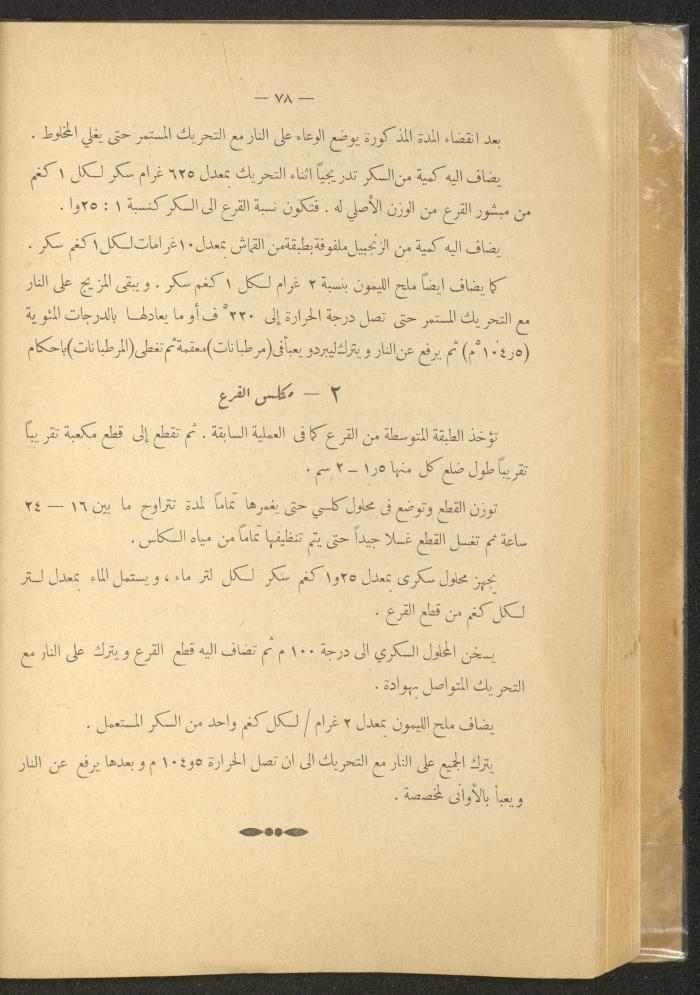 — ٧٨ —
بعد انقضاء المدة المذكورة يوضع الوعاء على النار مع التحريك المستمر حتى يغلي المخلوط .
يضاف اليه كمية من السكر تدريجياً اثناء التحريك بمعدل ٦٢٥ غرام سكر لكل ١ كغم
من مبشور القرع من الوزن الأصلي له . فتكون نسبة القرع الى السكر كنسبة ١ : ٢٥و١ .
يضاف اليه كمية من الزنجبيل ملفوفة بطبقة من القماش بمعدل ١٠ غرامات لكل ١ كغم سكر .
كما يضاف ايضاً ملح الليمون بنسبة ٢ غرام لكل ١ كغم سكر . ويبقى المزيج على النار
مع التحريك المستمر حتى تصل درجة الحرارة إلى ٢٢٠° ف أو ما يعادلها بالدرجات المئوية
(٥ر١٠٤°م) ثم يرفع عن النار ويترك ليبرد ويعبأ فى (مرطبانات) معقمة ثم تغطى (المرطبانات) باحكام
٢ — مكلس القرع
تؤخذ الطبقة المتوسطة من القرع كما فى العملية السابقة . ثم تقطع إلى قطع مكعبة تقريباً
تقريباً طول ضلع كل منها ٥ر١ — ٢ سم .
توزن القطع وتوضع فى محلول كلسي حتى يغمرها تماماً لمدة تتراوح ما بين ١٦ — ٢٤
ساعة ثم تغسل القطع غسلا جيداً حتى يتم تنظيفها تماماً من مياه الكلس .
يجهز محلول سكرى بمعدل ٢٥و١ كغم سكر لكل لتر ماء ، ويستمل الماء بمعدل لتر
لكل كغم من قطع القرع .
يسخن المحلول السكري الى درجة ١٠٠ م ثم تضاف اليه قطع القرع ويترك على النار مع
التحريك المتواصل بهوادة .
يضاف ملح الليمون بمعدل ٢ غرام / لكل كغم واحد من السكر المستعمل .
يترك الجميع على النار مع التحريك الى ان تصل الحرارة ٥و١٠٤ م وبعدها يرفع عن النار
ويعبأ بالأوانى لمخصصة .